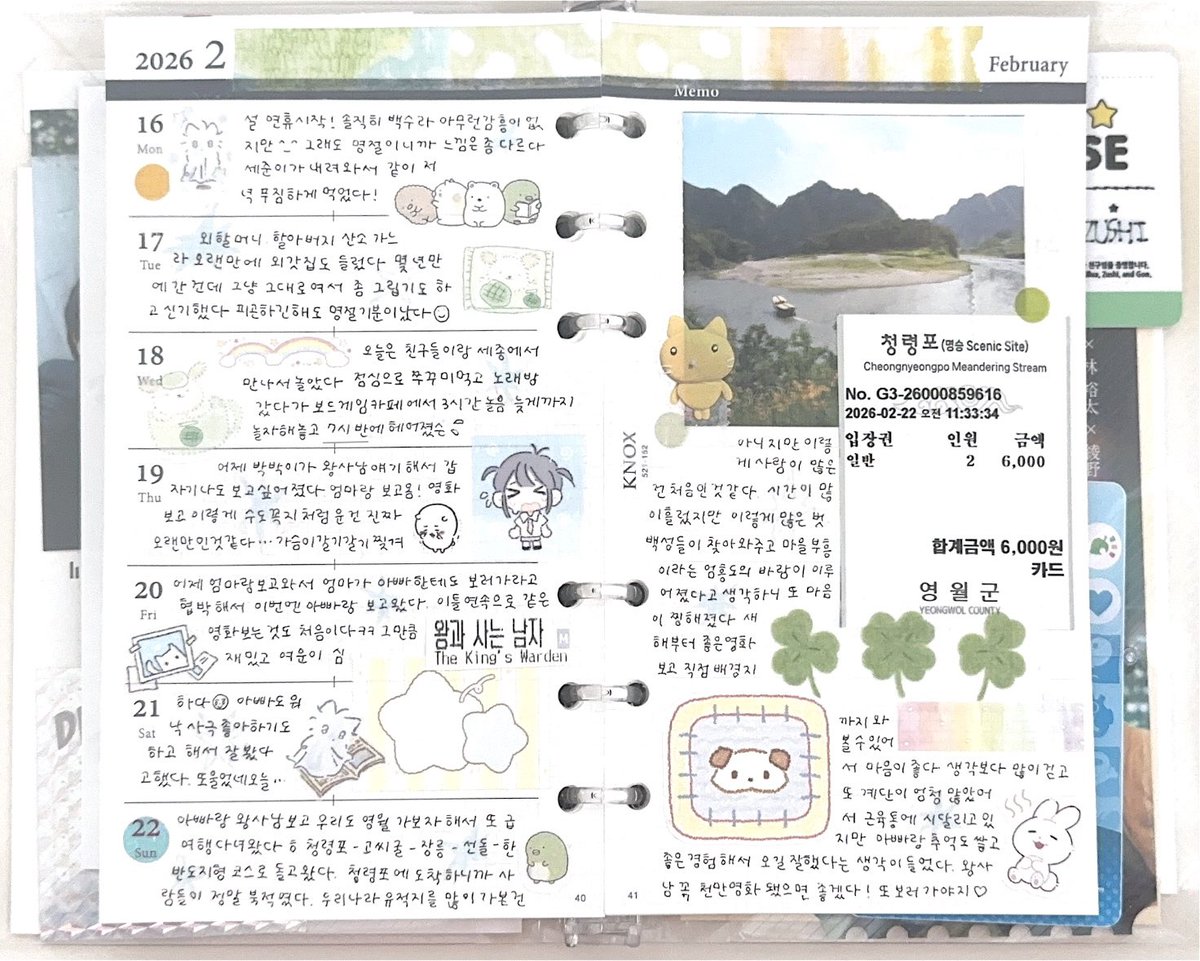 2026 2
16
Mon
설 연휴시작! 솔직히 백수라 아무런감흥이 없
지만 ^_^ 그래도 명절이니까 느낌은 좀 다르다
세준이가 내려와서 같이 저
녁 푸짐하게 먹었다!
17
Tue
외할머니 할아버지 산소 가느
라 오랜만에 외갓집도 들렀다 몇 년만
에 간건데 그냥 그대로여서 좀 그립기도 하
고 신기했다 피곤하긴해도 명절기분이났다
18
Wed
오늘은 친구들이랑 세종에서
만나서 놀았다 점심으로 쭈꾸미먹고 노래방
갔다가 보드게임카페에서 3시간 놀음 늦게까지
놀자해놓고 7시 반에 헤어졌슨
19
Thu
어제 박박이가 왕사남얘기 해서 갑
자기나도 보고싶어졌다 엄마랑 보고옴! 영화
보고 이렇게 수도꼭지 처럼 운건 진짜
오랜만인것같다… 가슴이갈기갈기 찢겨
20
Fri
어제 엄마랑보고와서 엄마가 아빠한테도 보러가라고
협박해서 이번엔 아빠랑 보고왔다. 이틀연속으로 같은
영화보는것도 처음이다ㅋㅋ 그만큼
재밌고 여운이 심
왕과 사는 남자
The King's Warden
M
21
Sat
하다 아빠도 워
낙 사극 좋아하기도
하고 해서 잘 봤다
고했다. 또울었네오늘…
22
Sun
아빠랑 왕사남보고 우리도 영월 가보자 해서 또 급
여행다녀왔다 ㅎ 청령포-고씨굴-장릉-선돌-한
반도지형 코스로 돌고왔다. 청령포에 도착하니까 사
람들이 정말 북적였다. 우리나라 유적지를 많이 가본건
40
February
Memo
청령포(명승 Scenic Site)
Cheongnyeongpo Meandering Stream
No. G3-26000859616
2026-02-22 오전 11:33:34
입장권 인원 금액
일반 2 6,000
합계금액 6,000원
카드
영월군
YEONGWOL COUNTY
KNOX
521-152
아니지만 이렇
게 사람이 많은
건 처음인것같다. 시간이 많
이흘렀지만 이렇게 많은 벗
백성들이 찾아와주고 마을 부흥
이라는 엄흥도의 바람이 이루
어졌다고 생각하니 또 마음
이 찡해졌다 새
해부터 좋은영화
보고 직접 배경지
까지 와
볼 수 있어
서 마음이 좋다 생각보다 많이걷고
또 계단이 엄청 많았어
서 근육통에 시달리고 있
지만 아빠랑 추억도 쌓고
좋은경험해서 오길 잘했다는 생각이들었다. 왕사
남 꼭 천만영화 됐으면 좋겠다! 또보러가야지♡
41
SE
ZUSHI
林裕太×綾野